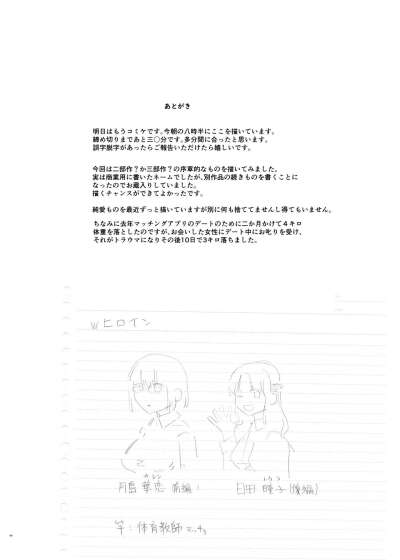 あとがき
明日はもうコミケです。今朝の八時半にここを描いています。
締め切りまであと三〇分です。多分間に合ったと思います。
誤字脱字があったらご報告いただけたら嬉しいです。
今回は二部作?か三部作?の序章的なものを描いてみました。
実は商業用に書いたネームでしたが、別作品の続きものを書くことに
なったのでお蔵入りしていました。
描くチャンスができてよかったです。
純愛ものを最近ずっと描いていますが別に何も捨ててませんし得てもいません。
ちなみに去年マッチングアプリのデートのために二か月かけて4キロ
体重を落としたのですが、お会いした女性にデート中にお叱りを受け、
それがトラウマになりその後10日で3キロ落ちました。
Wヒロイン
月島 葉恋 前編
日田 瞳子(後編)
竿:体育教師